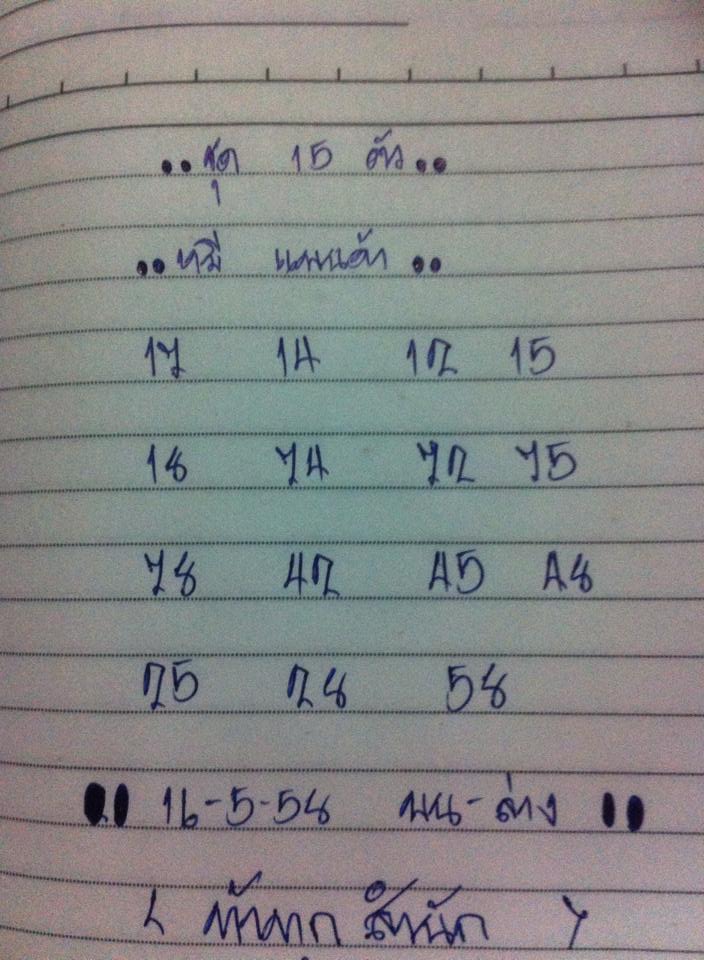 ..ชุด 15 ตัว..
..หมี แพนด้า ..
17 14 12 15
18 74 72 75
78 42 45 48
25 28 58
16-5-58 บน-ล่าง
( ท้าทุก สำนัก )